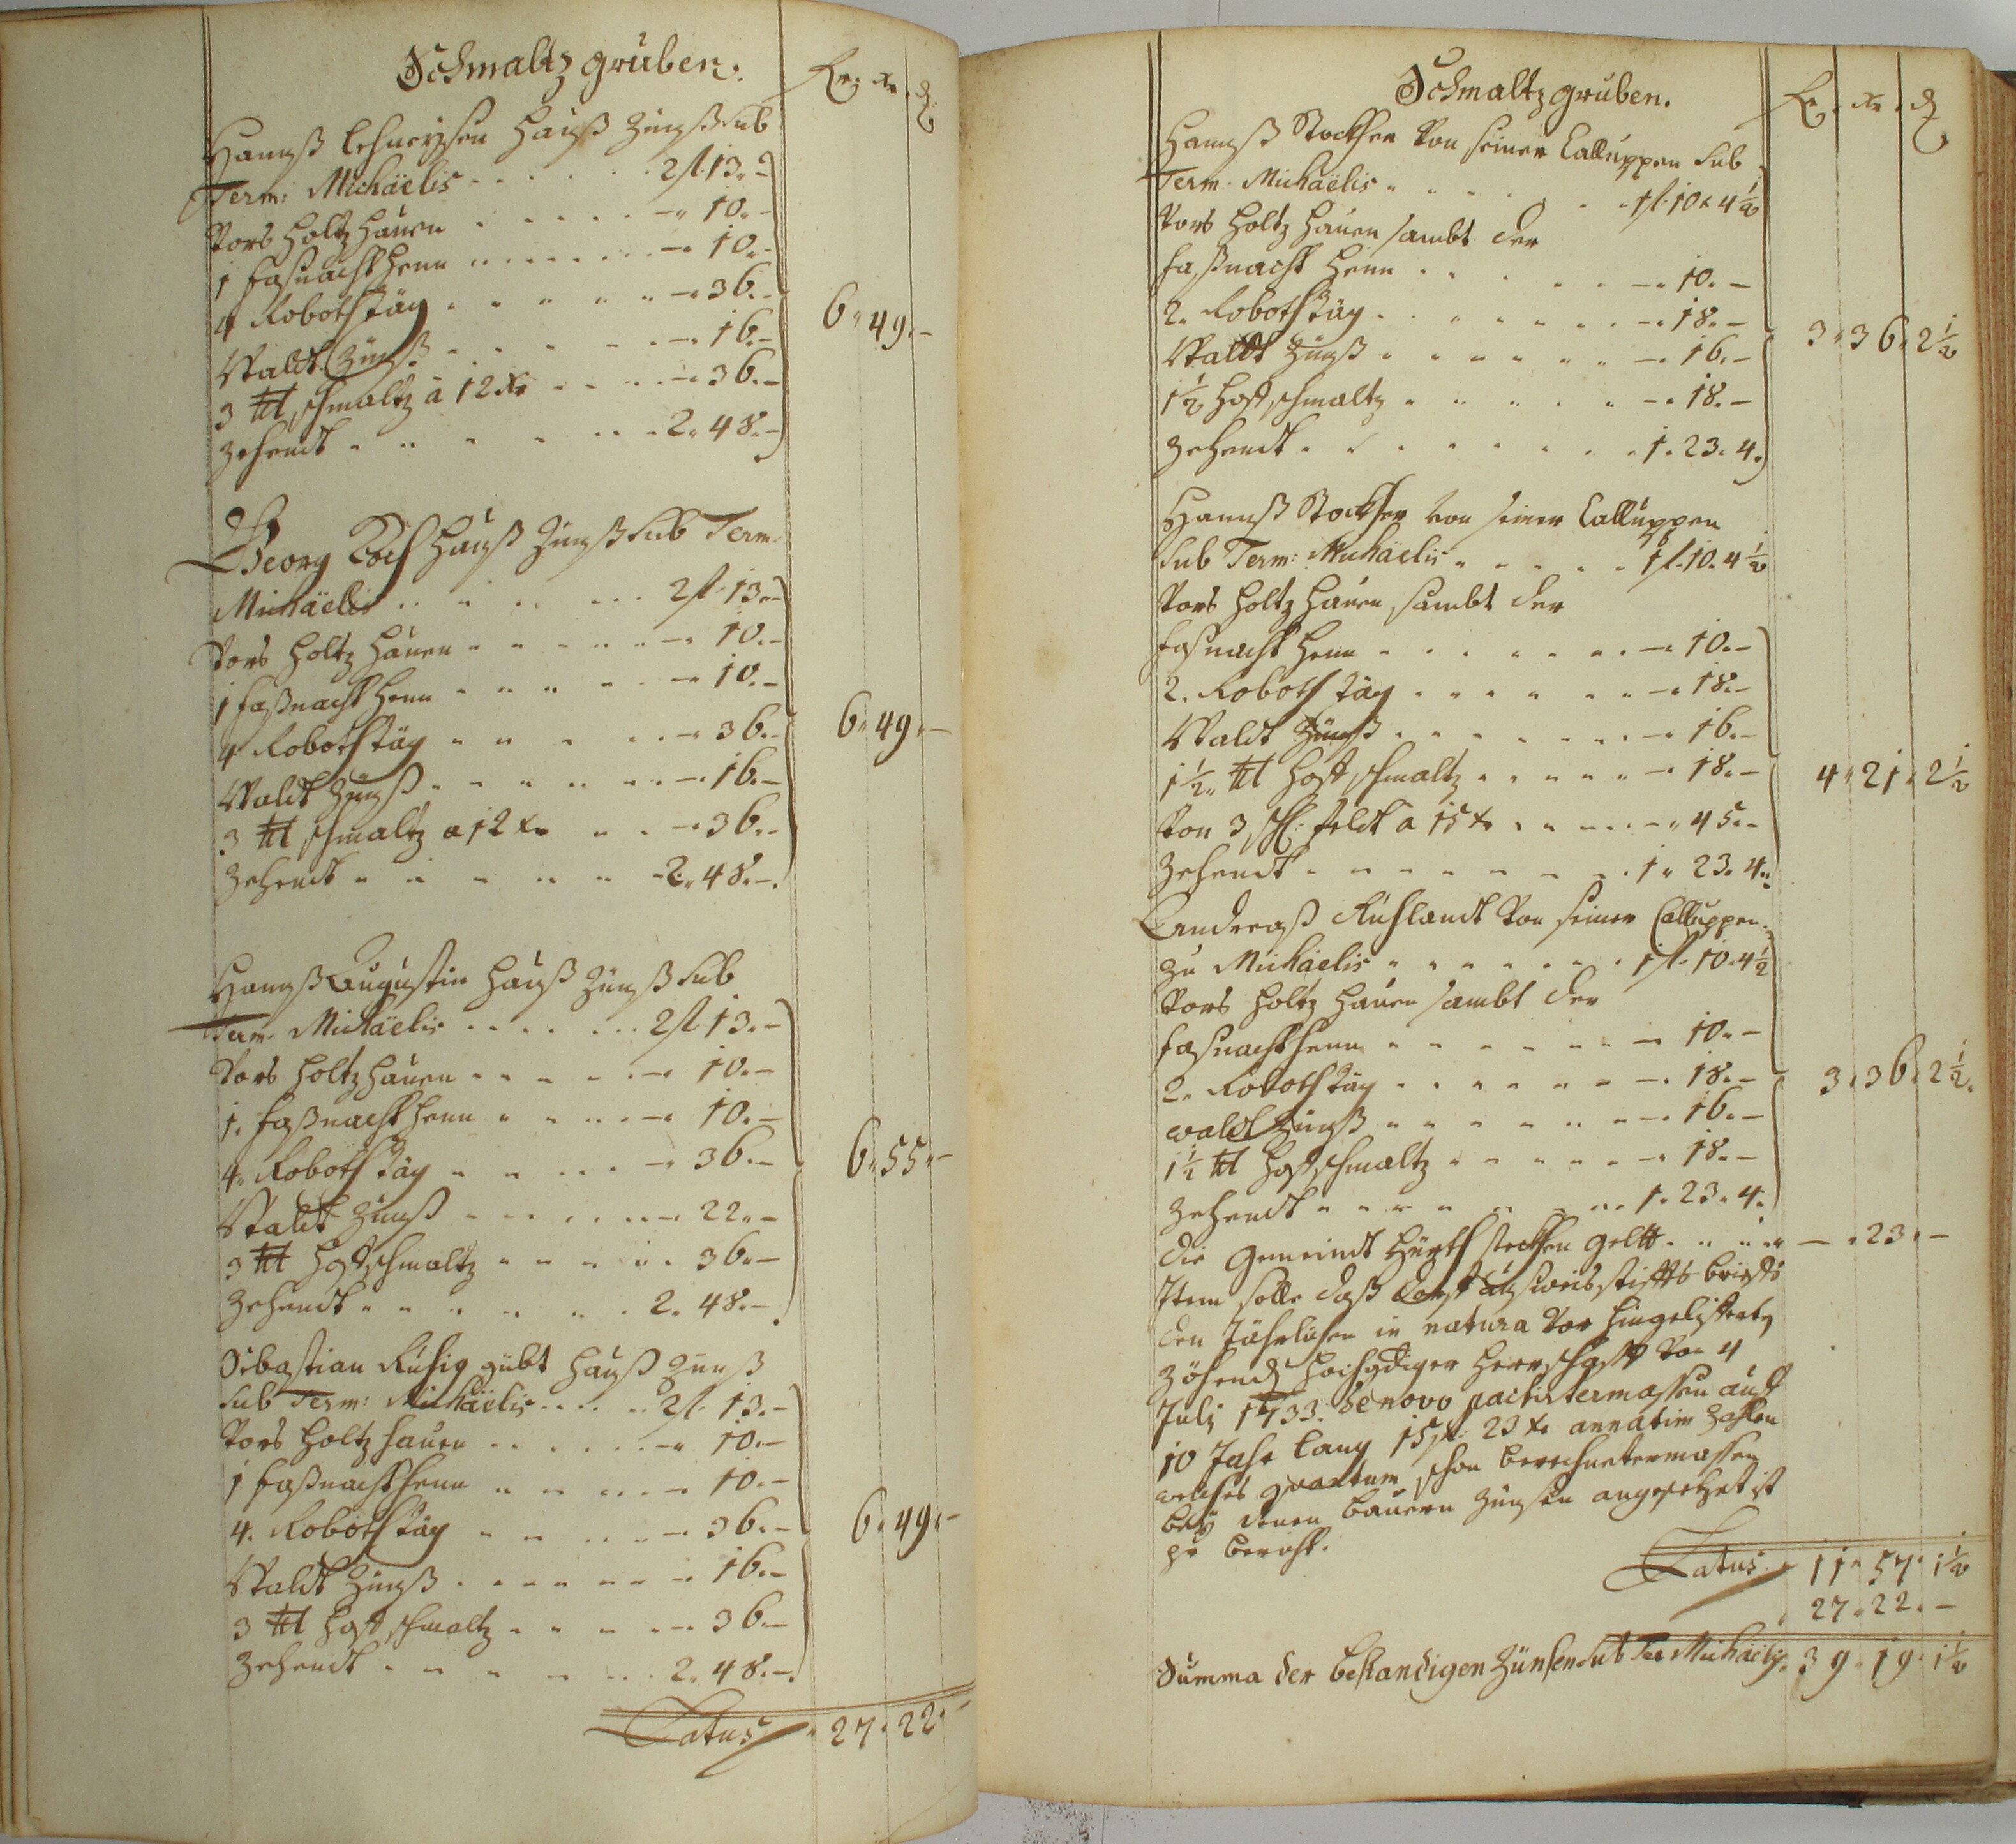 Schmaltzgruben.
fl. xr. ₰
Hannß Lehneysen Hauß Zünß sub
Term: Michäelis . . . . . . 2 fl. 13. –
Vors Holtz hauen . . . . . – 10. –
1 faßnacht Henn . . . . . . – 10. –
4 Roboth Täg . . . . . – 36. –
6. 49. –
Waldt Zünß . . . . . . – 16. –
3 ℔ schmaltz à 12 xr . . . . – 36. –
Zehendt . . . . . . 2. 48. –
Georg Hauß Zünß sub Term.
Michäelis . . . . . . 2 fl. 13. –
Vors Holtz hauen . . . . . – 10. –
1 faßnacht Henn . . . . . – 10. –
4 Roboth Täg . . . . . – 36. –
6. 49. –
Waldt Zünß . . . . . . – 16. –
3 ℔ schmaltz a 12 xr . . – 36. –
Zehendt . . . . . . 2. 48. –
Hannß Augustin Hauß Zünß sub
Term. Michäelis . . . . . . 2 fl. 13. –
Vors Holtz hauen . . . . . – 10. –
1. faßnacht Henn . . . . . – 10. –
4. Roboth Täg . . . . . – 36. –
6. 55. –
Waldt Zünß . . . . . . 22. –
3 ℔ Hofschmaltz . . . . . . 36. –
Zehendt . . . . . . 2. 48. –
Sebastian Rühig gübt Hauß Zünß
sub Term: Michäelis . . . . . 2 fl. 13. –
Vors Holtz hauen . . . . . . – 10. –
1 faßnacht Henn . . . . . – 10. –
4. Roboth Täg . . . . . – 36. –
6. 49. –
Waldt Zünß . . . . . . . – 16. –
3 ℔ Hoff schmaltz . . . . . – 36. –
Zehendt . . . . . . . 2. 48. –
Latus . 27. 22. –
Schmaltzgruben.
fl. xr. ₰
Hannß Stockher Von seiner Calluppen sub
Term. Michäelis . . . . . . 1 fl. 10. 4 1/2
Vors Holtz hauen sambt der
faßnacht Henn . . . . . – 10. –
2. Roboth Täg . . . . . . . – 18. –
3. 36. 2 1/2
Waldt Zünß . . . . . . . – 16. –
1 1/2 Hoff schmaltz . . . . . . – 18. –
Zehendt . . . . . . . . 1. 23. 4.
Hannß Stockher von seiner Calluppen
sub Term: Michäelis . . . . . 1 fl. 10. 4 1/2
Vors Holtz hauen sambt der
faßnacht Henn . . . . . . . – 10. –
2. Roboth Täg . . . . . . – 18. –
Waldt Zünß . . . . . . . – 16. –
1 1/2. ℔ Hoff schmaltz . . . . . – 18. –
4. 21. 2 1/2
Von 3 feldt a 15 xr . . . . . – 45. –
Zehendt . . . . . . . 1. 23. 4.
Andreaß Rühlandt Von seiner Calluppen.
Zu Michäelis . . . . . . . 1 fl. 10. 4 1/2
Vors Holtz hauen sambt der
faßnacht Henn . . . . . . . – 10. –
2. Roboth Täg . . . . . . . – 18. –
3. 36. 2 1/2.
waldt Zünß . . . . . . . – 16. –
1 1/2 ℔ Hoffschmaltz . . . . . . – 18. –
Zehendt . . . . . . . 1. 23. 4.
die Gemeindt Hürth stecken geltt . . . . . – . 23. –
Item solle daß brieffs
den Jährlichen in natura Vor hin
Zöhend Herrschafft Von 4
July 1733. de novo pactirtermassen auf
10 Jahr lang 15 fl. 23 xr annatim Zahlen
welches quantum schon berechnetermassen
bey denen bauern Zünsen angesetzet ist
Latus . 11. 57. 1 1/2
. 27. 22. –
Summa der bestandigen Zünsen sub Ter Michäelis. 39. 19. 1 1/2